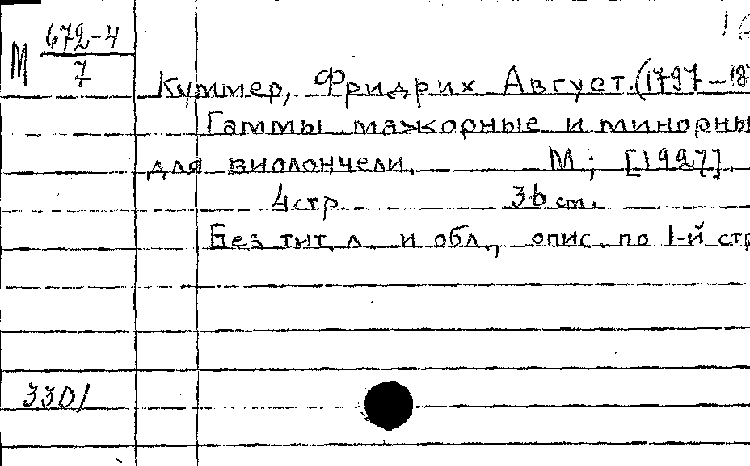 М 672-4
7
Куммер, Фридрих Август. (1797-18
Гаммы мажорные и минорны
для виолончели. М; [1927].
4 стр 36 cm.
Без тит. л. и обл., опис. по 1-й стр
3301